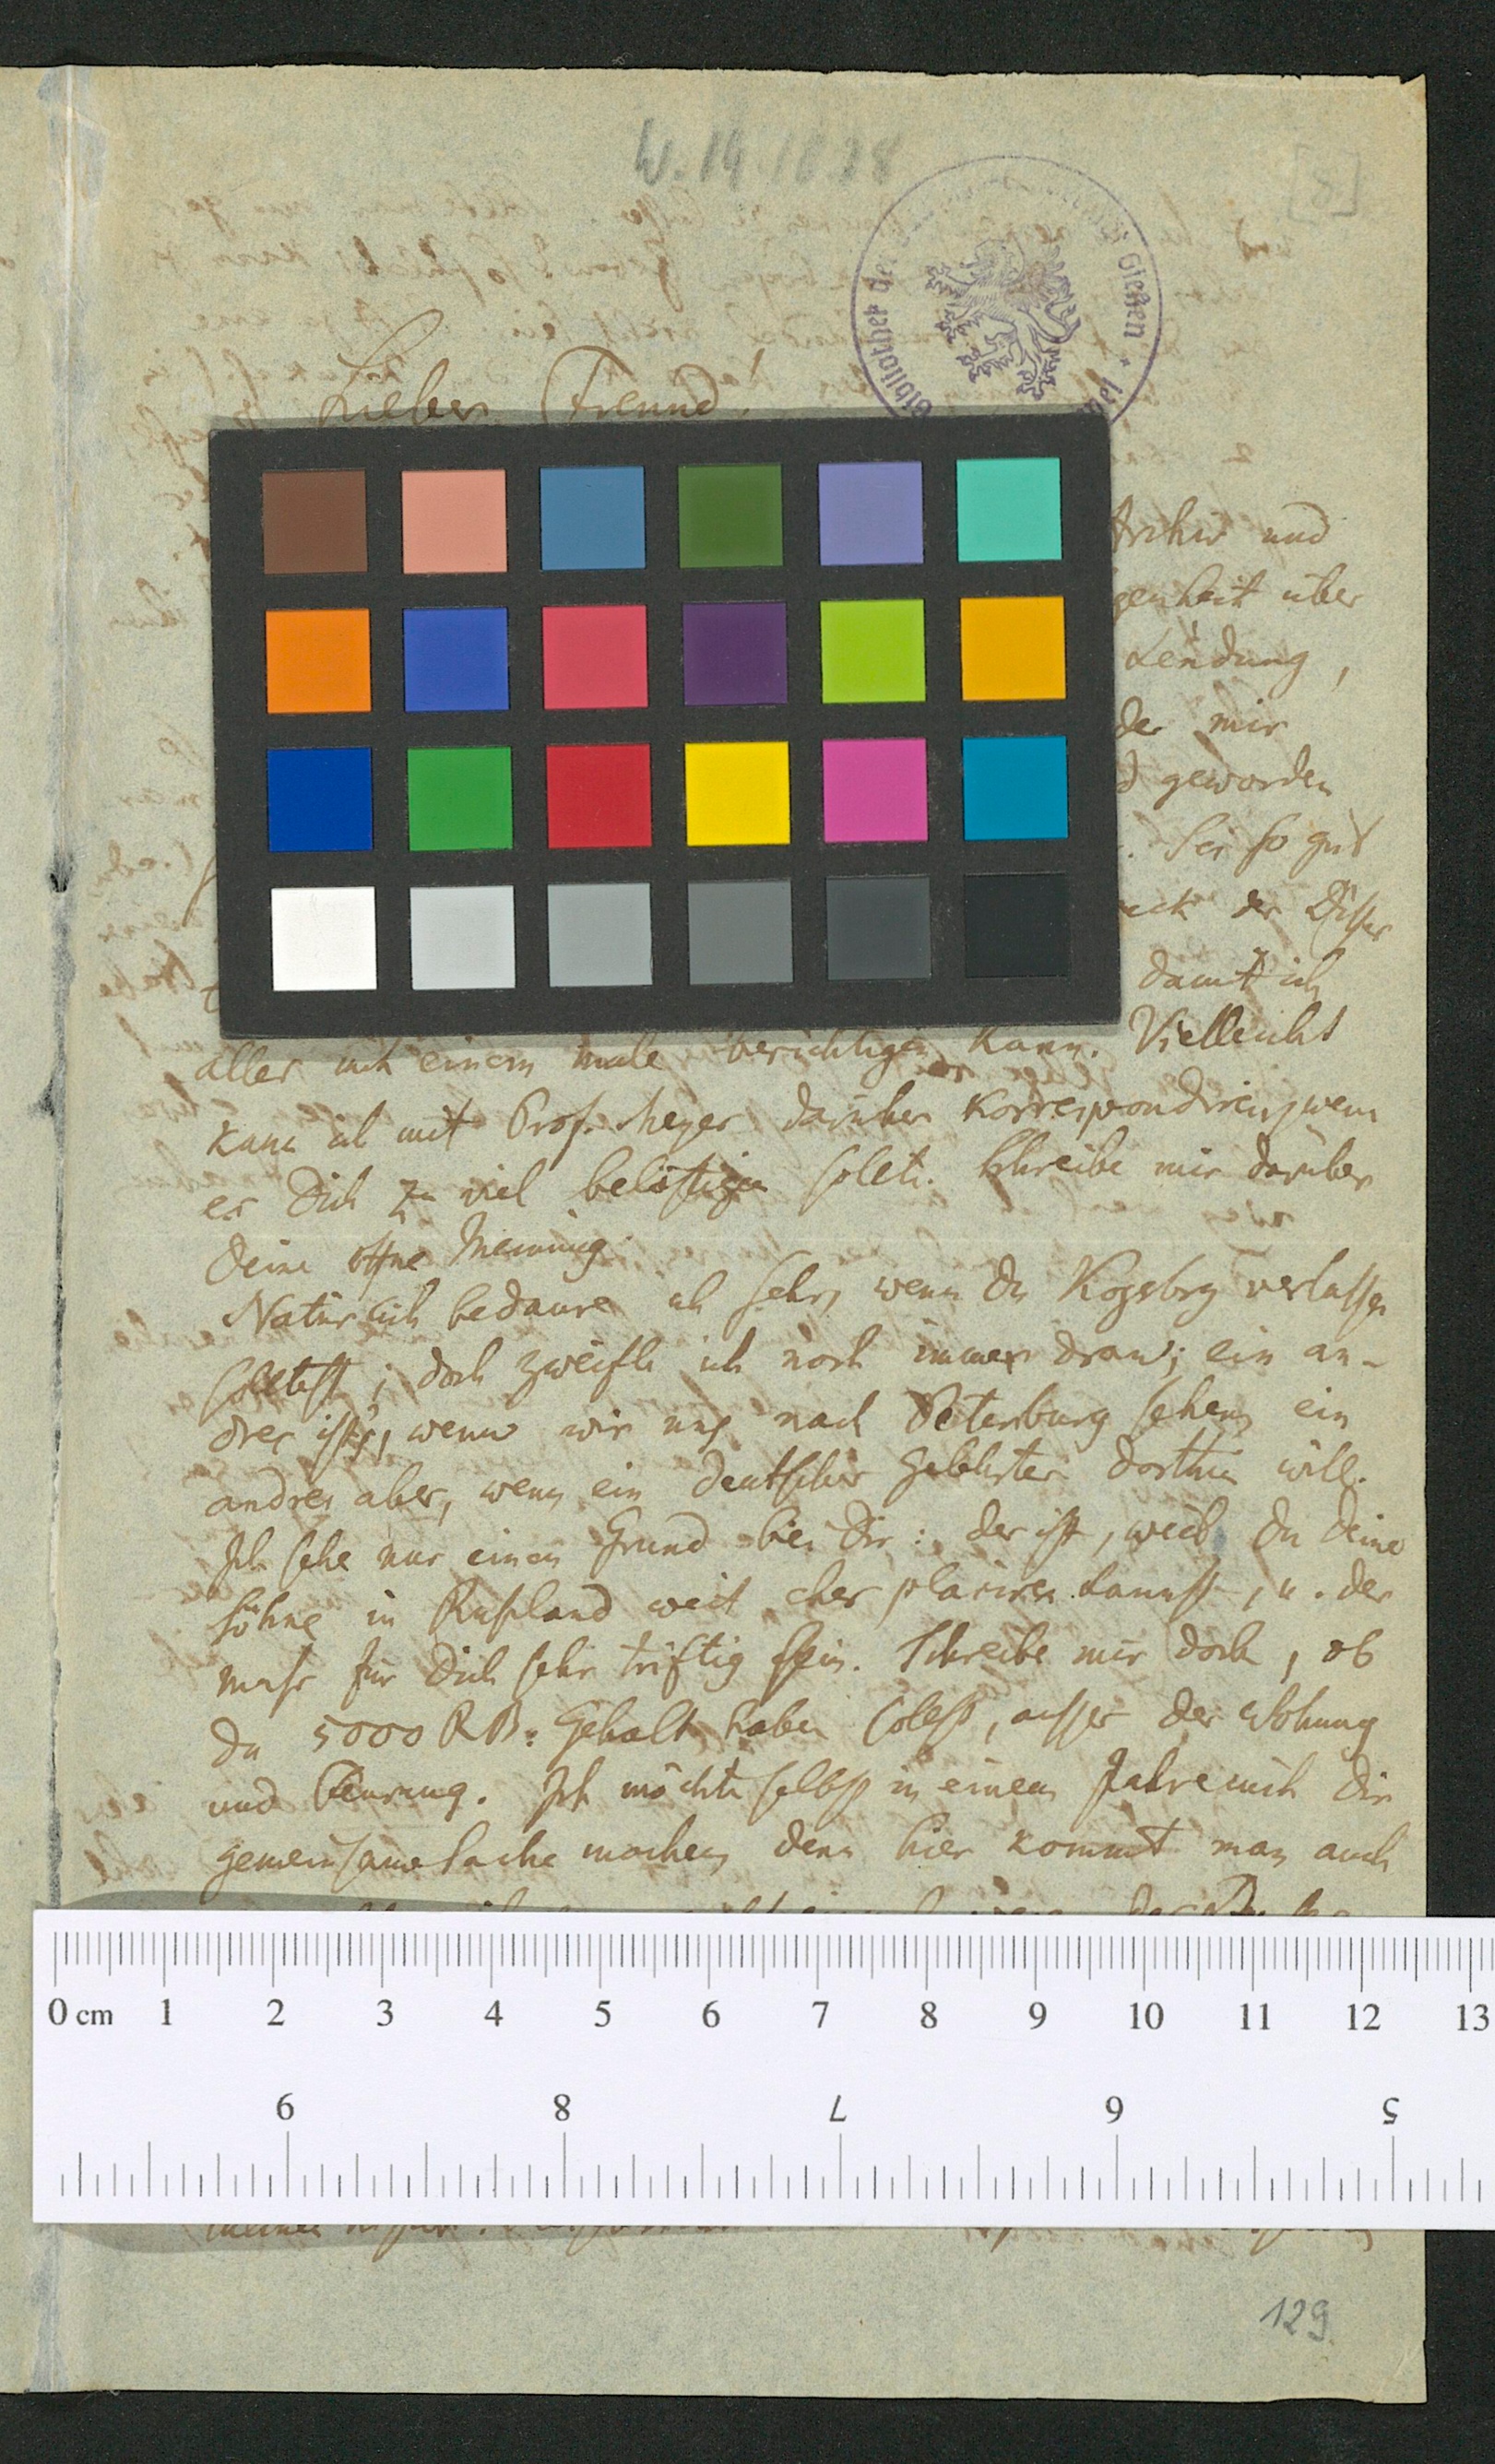 W. 14. 1828
[8]
Bibliothek der
Gießen
Lieber Freund!
Archiv und
genheit über
Sendung,
der mir
geworden
. Sei so gut
der Disser
damit ich
alles mit einem male berichtigen kann. Vielleicht
kann ich mit Prof. Meyer darüber korrespondiren, wenn
es Dich zu viel belästigen sollte. Schreibe mir darüber
Deine offne Meinung.
Natürlich bedaure ich sehr, wenn du Kgsbrg verlassen
solltest; doch zweifle ich noch immer dran; ein an-
dres ist's, wenn wir uns nach Petersburg sehen, ein
andres aber, wenn ein deutscher Gelehrter dorthin will.
Ich sehe nur einen Grund bei Dir: der ist, weil du deine
Söhne in Rußland weit eher placiren kannst, u. der
muß für Dich sehr triftig sein. Schreibe mir doch, ob
du 5000 RB. Gehalt haben sollst, außer der Wohnung
und Feurung. Ich möchte selbst in einem Jahre mit Dir
gemeinsame Sache machen, denn hier kommt man auch
0 cm 1 2 3 4 5 6 7 8 9 10 11 12 13
9 8 7 6 5
129